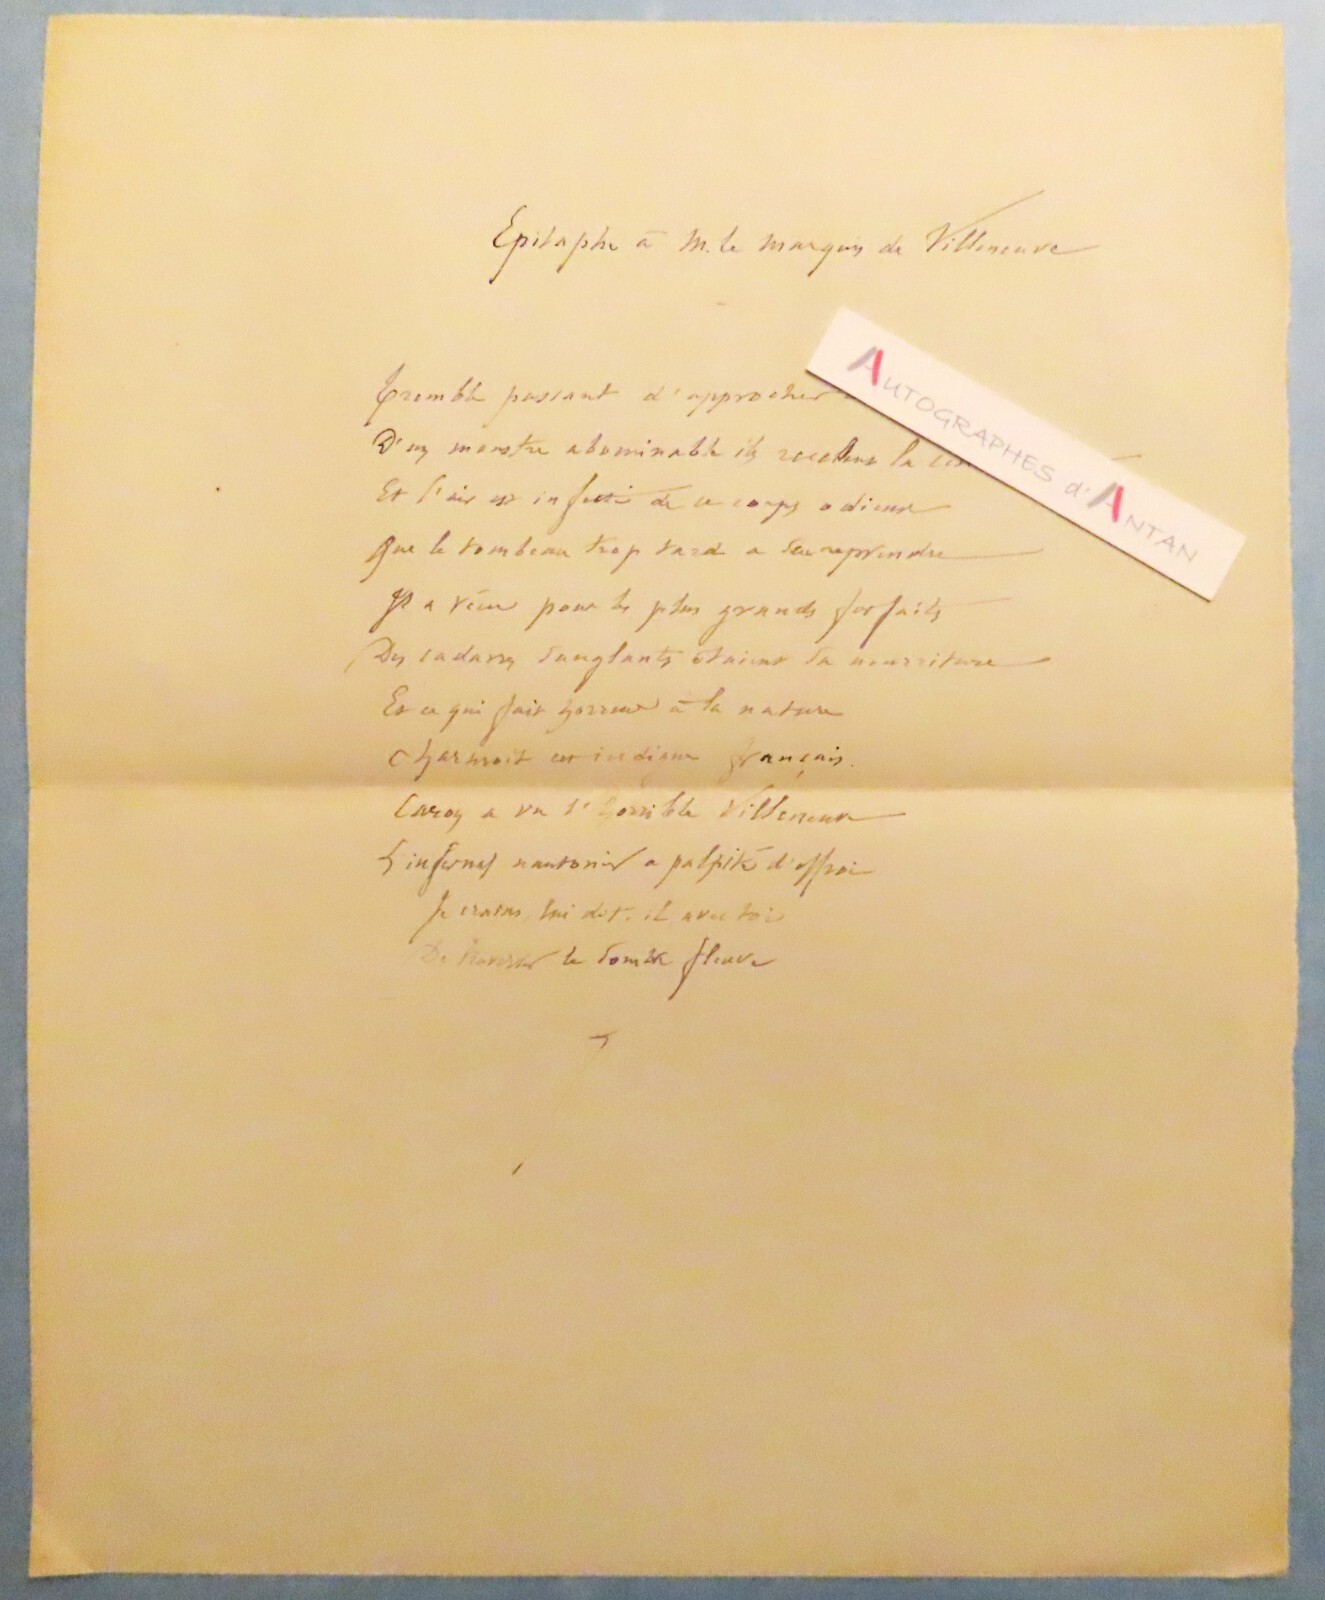 Epitaphe à M. le Marquis de Villeneuve
Tremble passant d'approcher
D'un monstre abominable ils recelent la
Et l'air est infecté de ce corps odieux
Que le tombeau trop tard a su reprendre
Il a vécu pour les plus grands forfaits
Des cadavres sanglants étaient sa nourriture
Et ce qui fait horreur à la nature
Charmoit cet indigne français.
Caron a vu l'horrible Villeneuve
L'infernal nautonier a palpité d'effroi
Je crains, lui dit-il avec toi
De traverser le sombre fleuve
AUTOGRAPHES d'ANTAN